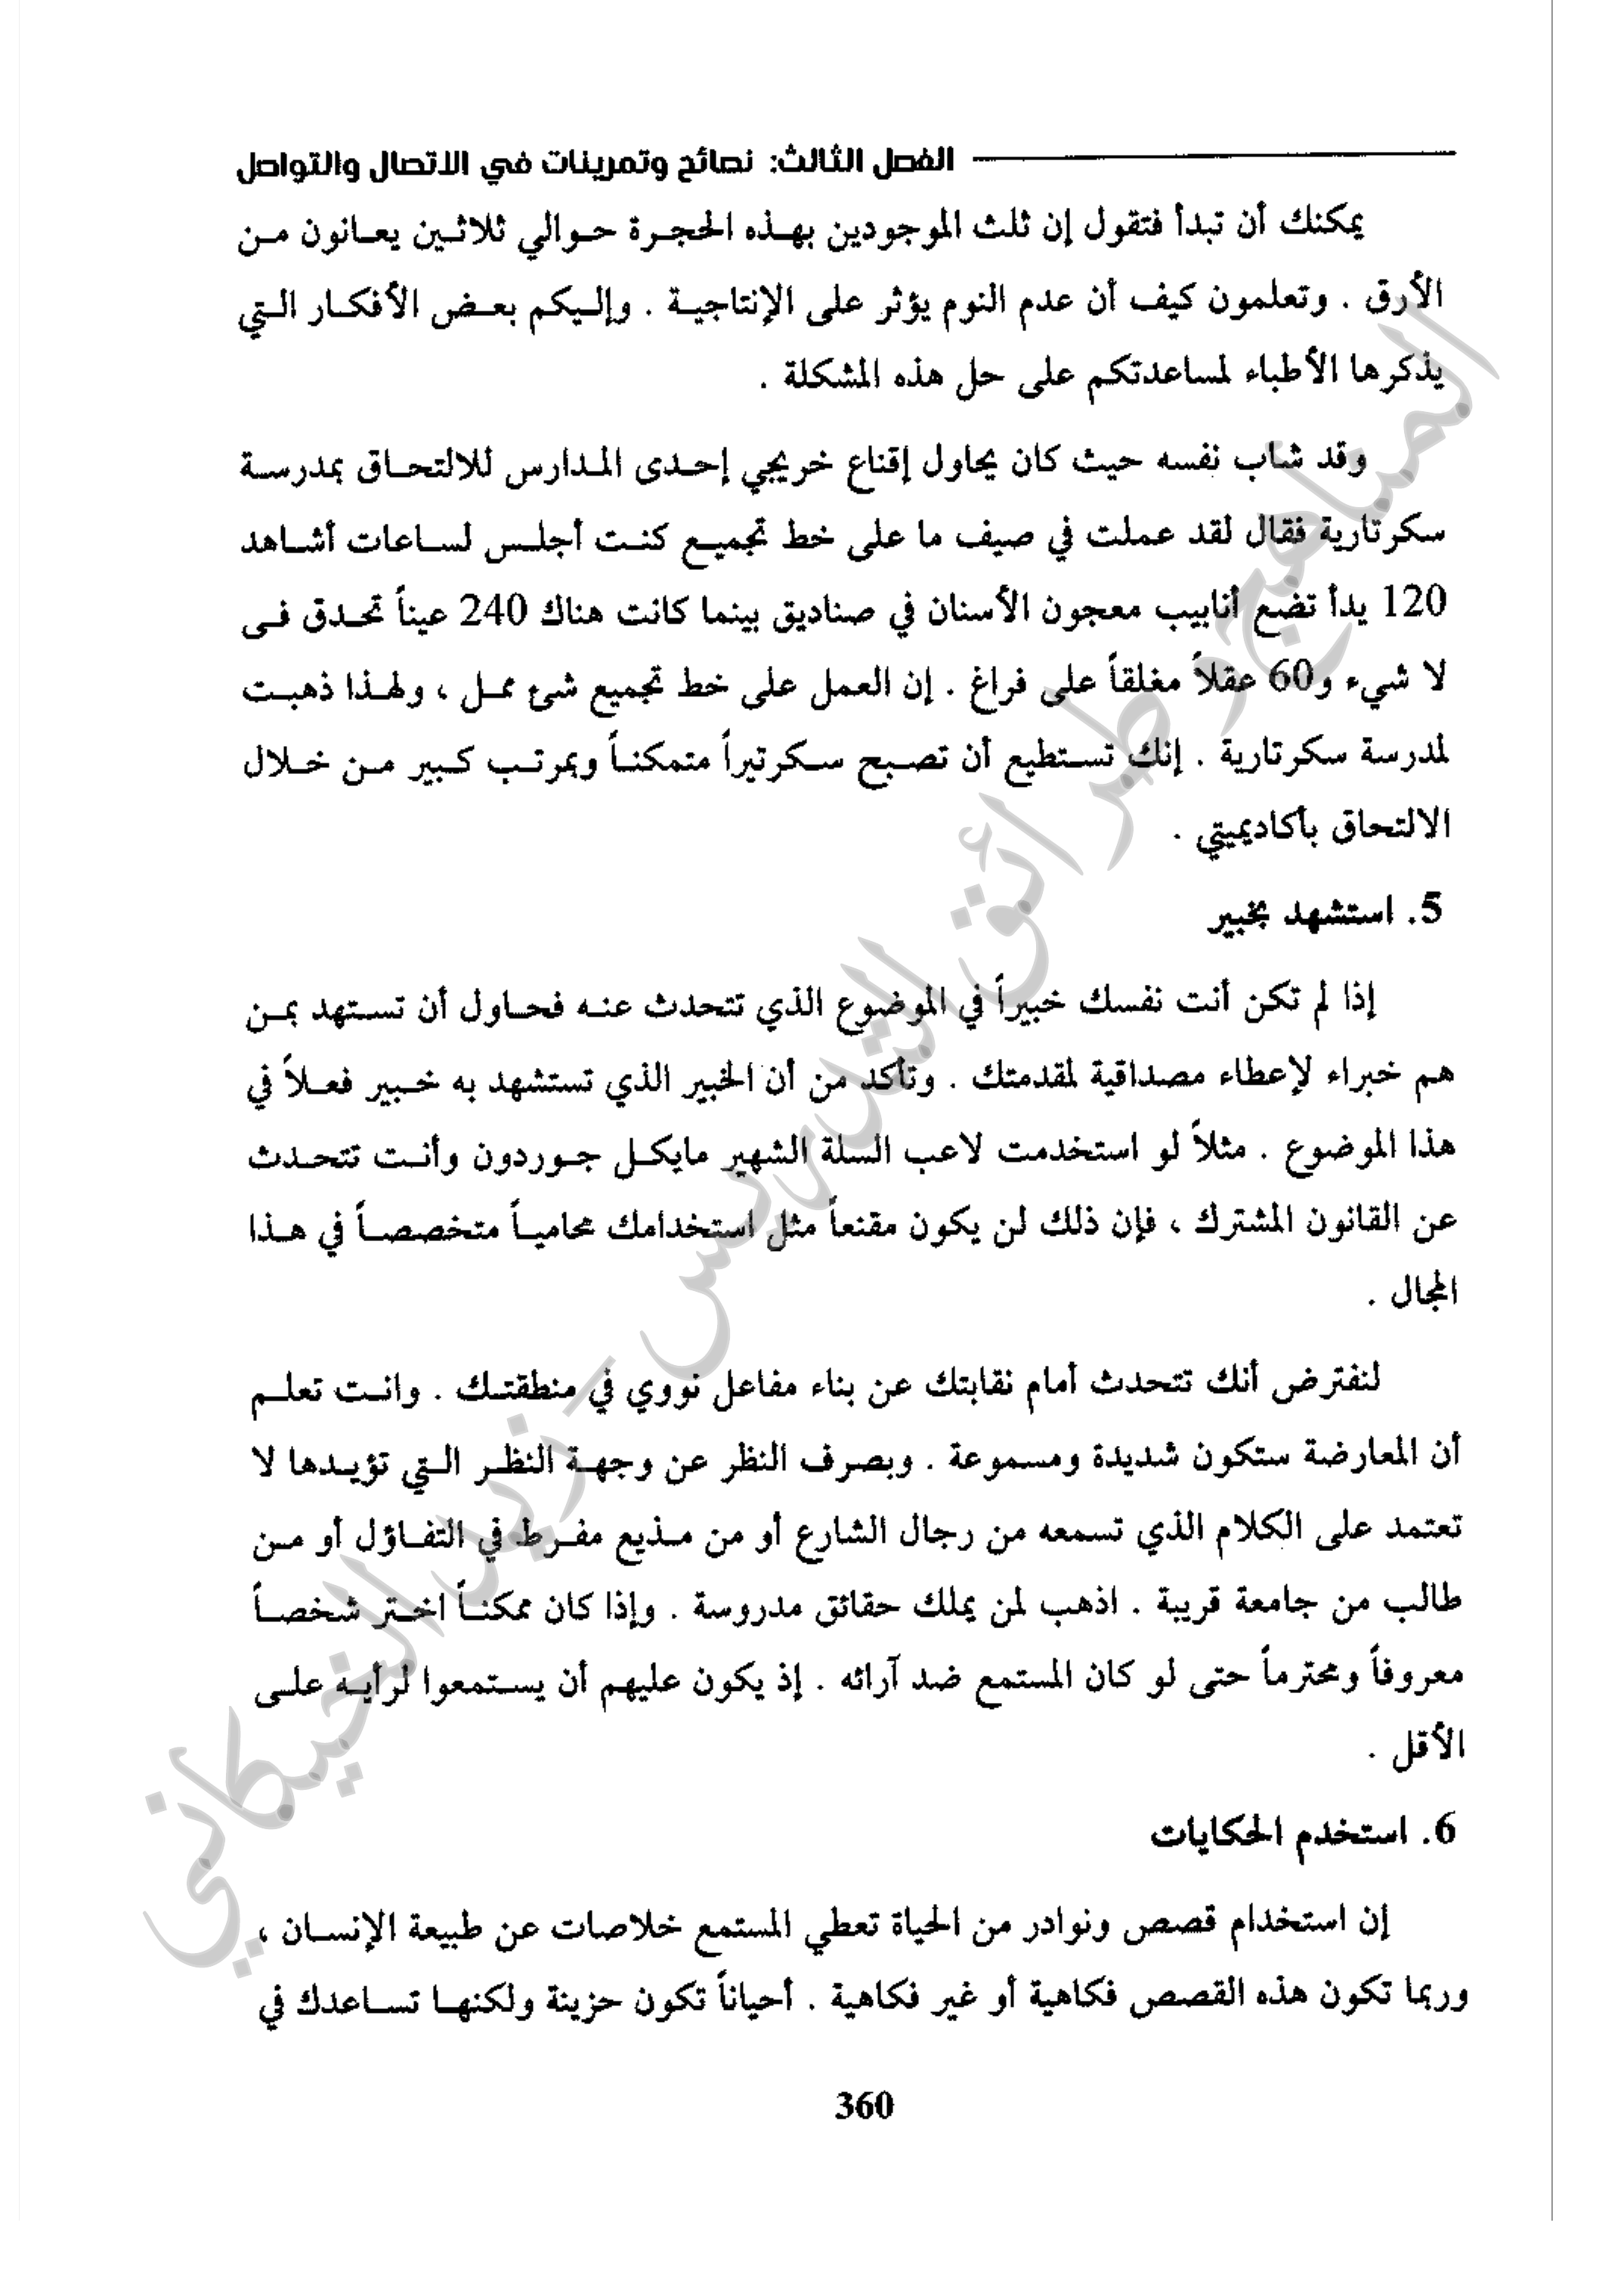 الفصل الثالث: نصائح وتمرينات في الاتصال والتواصل
يمكنك أن تبدأ فتقول إن ثلث الموجودين بهذه الحجرة حوالي ثلاثين يعانون من
الأرق . وتعلمون كيف أن عدم النوم يؤثر على الإنتاجية . وإليكم بعض الأفكار التي
يذكرها الأطباء لمساعدتكم على حل هذه المشكلة .
وقد شاب نفسه حيث كان يحاول إقناع خريجي إحدى المدارس للالتحاق بمدرسة
سكرتارية فقال لقد عملت في صيف ما على خط تجميع كنت أجلس لساعات أشاهد
120 يدأ تضع أنابيب معجون الأسنان في صناديق بينما كانت هناك 240 عيناً تحدق فى
لا شيء و60 عقلاً مغلقاً على فراغ . إن العمل على خط تجميع شئ ممل ، ولهذا ذهبت
لمدرسة سكرتارية . إنك تستطيع أن تصبح سكرتيراً متمكناً وبمرتب كبير من خلال
الالتحاق بأكاديميتي .
5. استشهد بخبير
إذا لم تكن أنت نفسك خبيراً في الموضوع الذي تتحدث عنه فحاول أن تستهد بمن
هم خبراء لإعطاء مصداقية لمقدمتك . وتأكد من أن الخبير الذي تستشهد به خبير فعلاً في
هذا الموضوع . مثلاً لو استخدمت لاعب السلة الشهير مايكل جوردون وأنت تتحدث
عن القانون المشترك ، فإن ذلك لن يكون مقنعاً مثل استخدامك محامياً متخصصاً في هذا
المجال .
لنفترض أنك تتحدث أمام نقابتك عن بناء مفاعل نووي في منطقتك . وانت تعلم
أن المعارضة ستكون شديدة ومسموعة . وبصرف النظر عن وجهة النظر التي تؤيدها لا
تعتمد على الكلام الذي تسمعه من رجال الشارع أو من مذيع مفرط في التفاؤل أو من
طالب من جامعة قريبة . اذهب لمن يملك حقائق مدروسة . وإذا كان ممكناً اختر شخصاً
معروفاً ومحترماً حتى لو كان المستمع ضد آرائه . إذ يكون عليهم أن يستمعوا لرأيه على
الأقل .
6. استخدم الحكايات
إن استخدام قصص ونوادر من الحياة تعطي المستمع خلاصات عن طبيعة الإنسان ،
وربما تكون هذه القصص فكاهية أو غير فكاهية . أحياناً تكون حزينة ولكنها تساعدك في
360
المناهج وطرائق التدريس - زيد الخيكاني